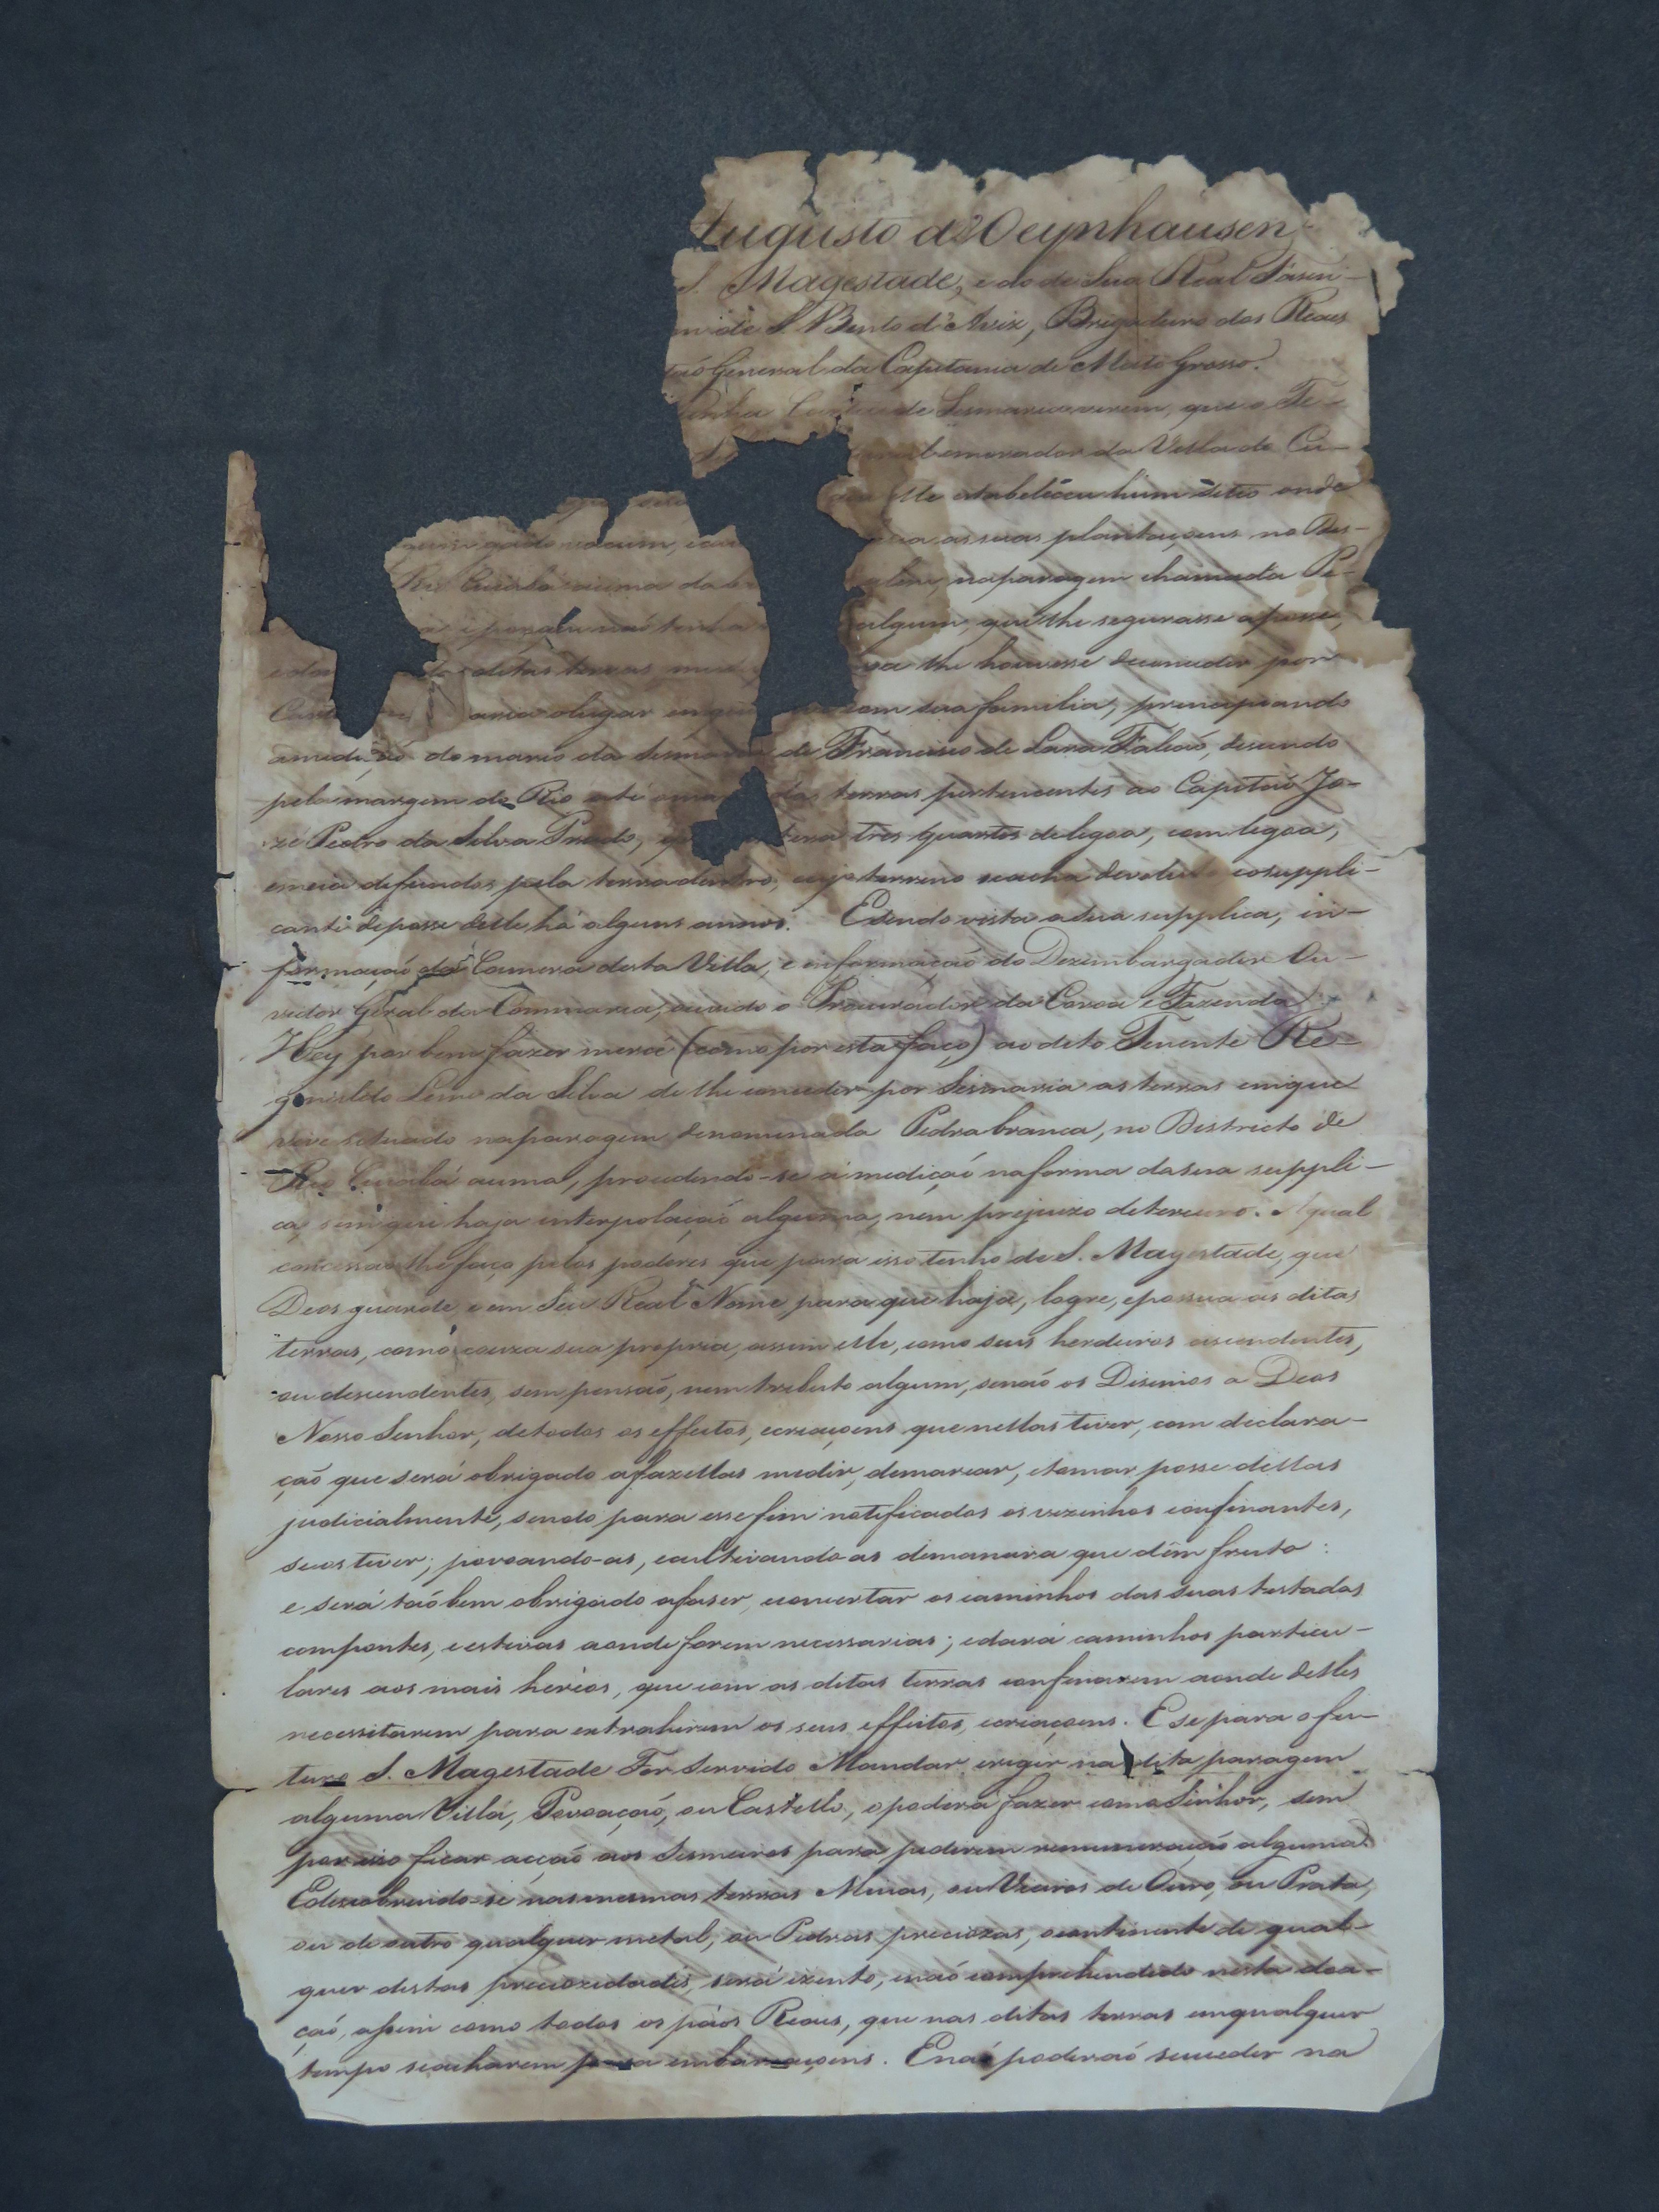 Augusto d'Oeynhausen
S. Magestade, e do de Sua Real Fasen-
de S. Bento d'Aviz, Brigadeiro dos Reaes
General da Capitania de Mato Grosso.
Carta de Sesmaria virem, que o Te-
morador da Villa do Cu-
elle estabeleceu hum sitio onde
gado vacum, as suas plantaçoens no Des-
Cuiabá acima da na paragem chamada Pe-
e porque naó tinha algum, que lhe segurasse a posse,
ditas terras lhe houvesse de conceder por
o lugar em que com sua familia, principiando
a mediçaó do marco da de Francisco de Lara Falcaó, descendo
pela margem do Rio até das terras pertencentes ao Capitaó Jo-
zé Pedro da Silva Prado, tres quartos de legoa, com legoa,
e meia de fundos, pela terra dentro, cujo terreno se acha devoluto e o suppli-
cante de posse delle há alguns annos. E tendo vista a sua supplica, in-
formaçaó da Camera desta Villa, e informaçaó do Dezembargador Ou-
vidor Geral da Commarca, ouvido o Procurador da Coroa e Fazenda
Hey por bem fazer mercé (como por esta faço) ao dito Tenente Re-
Leme da Silva de lhe conceder por Sesmaria as terras em que
vive situado na paragem denominada Pedra branca, no Districto de
Rio Cuiabá acima, procedendo-se á mediçaó na forma da sua suppli-
ca, sem que haja interpolaçaó alguma, nem prejuizo de terceiro. A qual
concessaó lhe faço pelos poderes que para isso tenho de S. Magestade, que
Deos guarde, e em Seu Real Nome para que haja, logre, e possua as ditas
terras, como couza sua propria, assim elle, como seus herdeiros ascendentes,
ou descendentes, sem pensaó, nem tributo algum, senaó os Disimos a Deos
Nosso Senhor, de todos os effeitos, e criaçoens que nellas tiver, com declara-
çaó que será obrigado a fazellas medir, demarcar, e tomar posse dellas
judicialmente, sendo para esse fim notificados os vezinhos confinantes,
se os tiver; povoando-as, e cultivando as de maneira que dêm fruto:
e será taóbem obrigado a faser, e concertar os caminhos das suas testadas
com pontes, e estivas aonde forem necessarias; e dará caminhos particu-
lares aos mais heréos, que com as ditas terras confinarem aonde delles
necessitarem para extrahirem os seus effeitos, e criaçoens. E se para o fu-
turo S. Magestade For Servido Mandar erigir na dita paragem
alguma Villa, Povoaçaó, ou Castello, o poderá fazer como Senhor, sem
por isso ficar acçaó aos Sesmeiros para pedirem remuneraçaó alguma.
E descobrindo-se nas mesmas terras Minas, ou Vieiros de Ouro, ou Prata,
ou de outro qualquer metal, ou Pedras preciozas, o continente de qual-
quer destas preciozidades, será izento, e naó comprehendido nesta doa-
çaó, assim como todos os páos Reaes, que nas ditas terras em qualquer
tempo se acharem para embarcaçoens. E naó poderaó succeder na